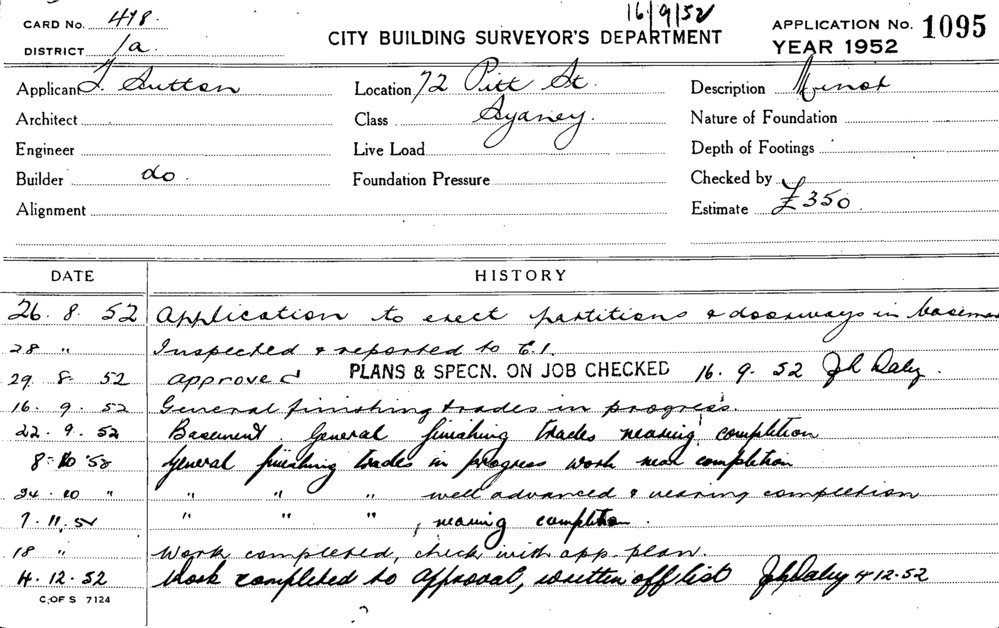 16/9/52
CARD No. 478.
DISTRICT 1a.
CITY BUILDING SURVEYOR'S DEPARTMENT
APPLICATION No. 1095
YEAR 1952
Applicant Sutton
Location 72 Pitt St.
Description Minor
Architect
Class Sydney.
Nature of Foundation
Engineer
Live Load
Depth of Footings
Builder do.
Foundation Pressure
Checked by
Alignment
Estimate £350.
DATE HISTORY
26. 8. 52 Application to erect partitions & doorways in basement
28 " Inspected & reported to C.I.
29 8. 52 approved PLANS & SPECN. ON JOB CHECKED 16. 9. 52 Daley.
16. 9. 52 General finishing trades in progress.
22. 9. 52 Basement General finishing trades nearing completion
8 10 52 General finishing trades in progress work near completion
24. 10 " " " " well advanced & nearing completion
7. 11. 52 " " " , nearing completion.
18 " Work completed, check with app. plan.
4. 12. 52 Work completed to approval, written off list Daley 4 12.52
C. OF S 7124